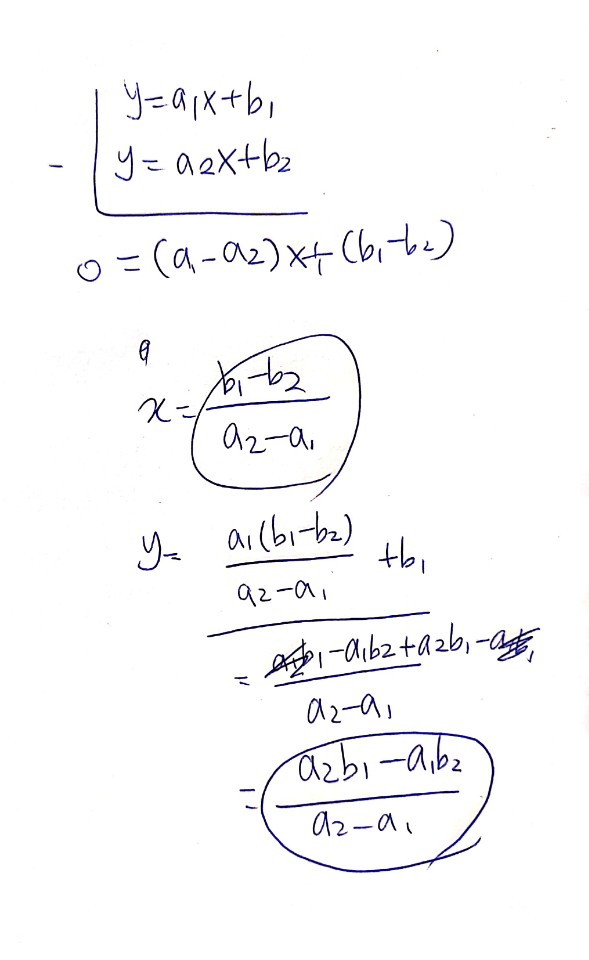 y=a₁x+b₁
- y=a₂x+b₂
0=(a₁-a₂)x+(b₁-b₂)
x=(b₁-b₂)/(a₂-a₁)
y=a₁(b₁-b₂)/(a₂-a₁)+b₁
=(a₁b₁-a₁b₂+a₂b₁-a₁b₁)/(a₂-a₁)
=(a₂b₁-a₁b₂)/(a₂-a₁)